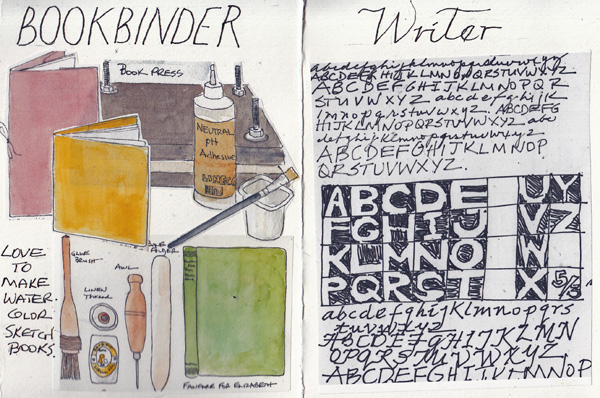 BOOKBINDER
BOOK PRESS
NEUTRAL
pH
Adhesive
GLUE
BRUSH
BONE
FOLDER
AWL
LINEN
THREAD
LOVE
TO
MAKE
WATER.
COLOR
SKETCH
BOOKS.
FANFARE FOR ELIZABETH
Writer
abcdefghijklmnopqrstuvwxyz
ABCDEFGHIJKLMNOPQRSTUVWXYZ
ABCDEFGHIJKLMNOPQR
STUVWXYZ abcdefghijk
lmnopqrstuvwxyz ABCDEFG
HIJKLMNOPQRSTUVWXYZ abc
defghijklmnopqrstuvwxyz
ABCDEFGHIJKLMNOP
QRSTUVWXYZ.
ABCDE UY
FGHIJ VZ
KLMNO W
PQRST X 5/3
abcdefghijklmnopqrs
tuvwxyz
ABCDEFGHIJKLMN
OPQRSTUVWXYZ
ABCDEFGHIJKLMNOP